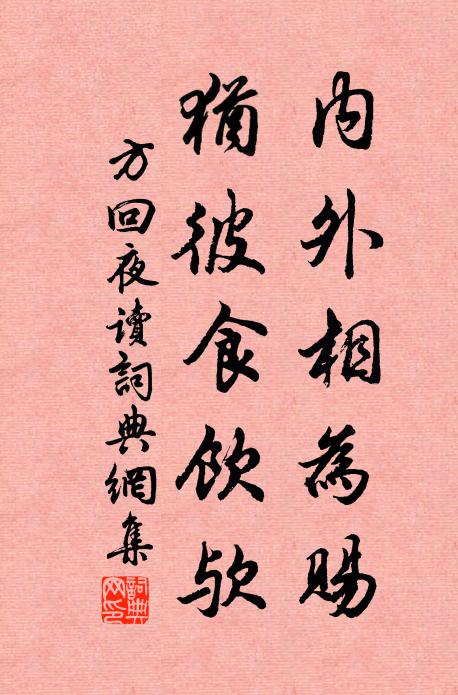 內外相為賜
猶彼食飲歟
方回夜讀詞典網集
詞典网印